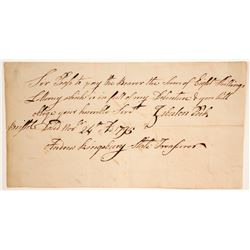 Sir Please to pay the Bearer the Sum of Eight Shillings
L Money which is in full of my Debenture & you will
oblige your humble Servt
Bristol Dated Novr 24th AD 1795
Andrew Kingsbury State Treasurer